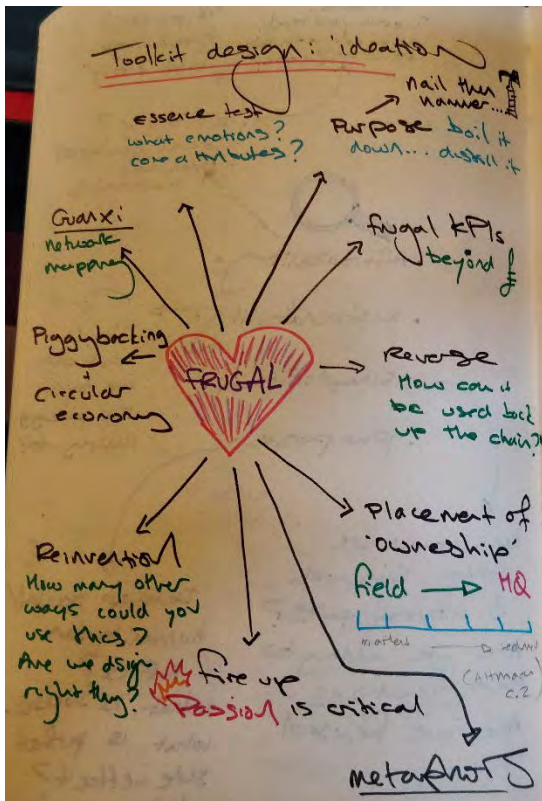 Toolkit design: ideation
essence test
what emotions?
core attributes?
nail then
hammer...
Purpose boil it
down... distill it
Guanxi
network
mapping
frugal KPIs
beyond £
Piggybacking
+
circular
economy
FRUGAL
Reverse
How can it
be used back
up the chain?
Placement of
'ownership'
field → HQ
markets →
c.2)
Reinvention
How many other
ways could you
use this?
Are we dsign
right thing?
fire up
Passion is critical
metaphors